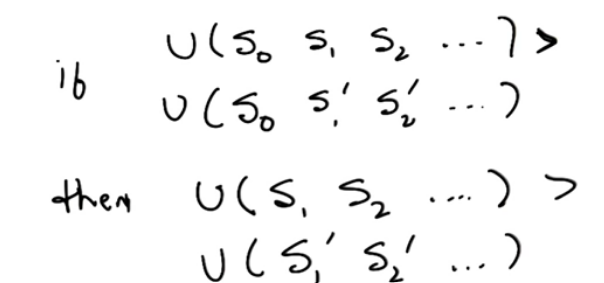 if U(S₀ S₁ S₂ ...) >
U(S₀ S₁' S₂' ...)
then U(S₁ S₂ ....) >
U(S₁' S₂' ...)